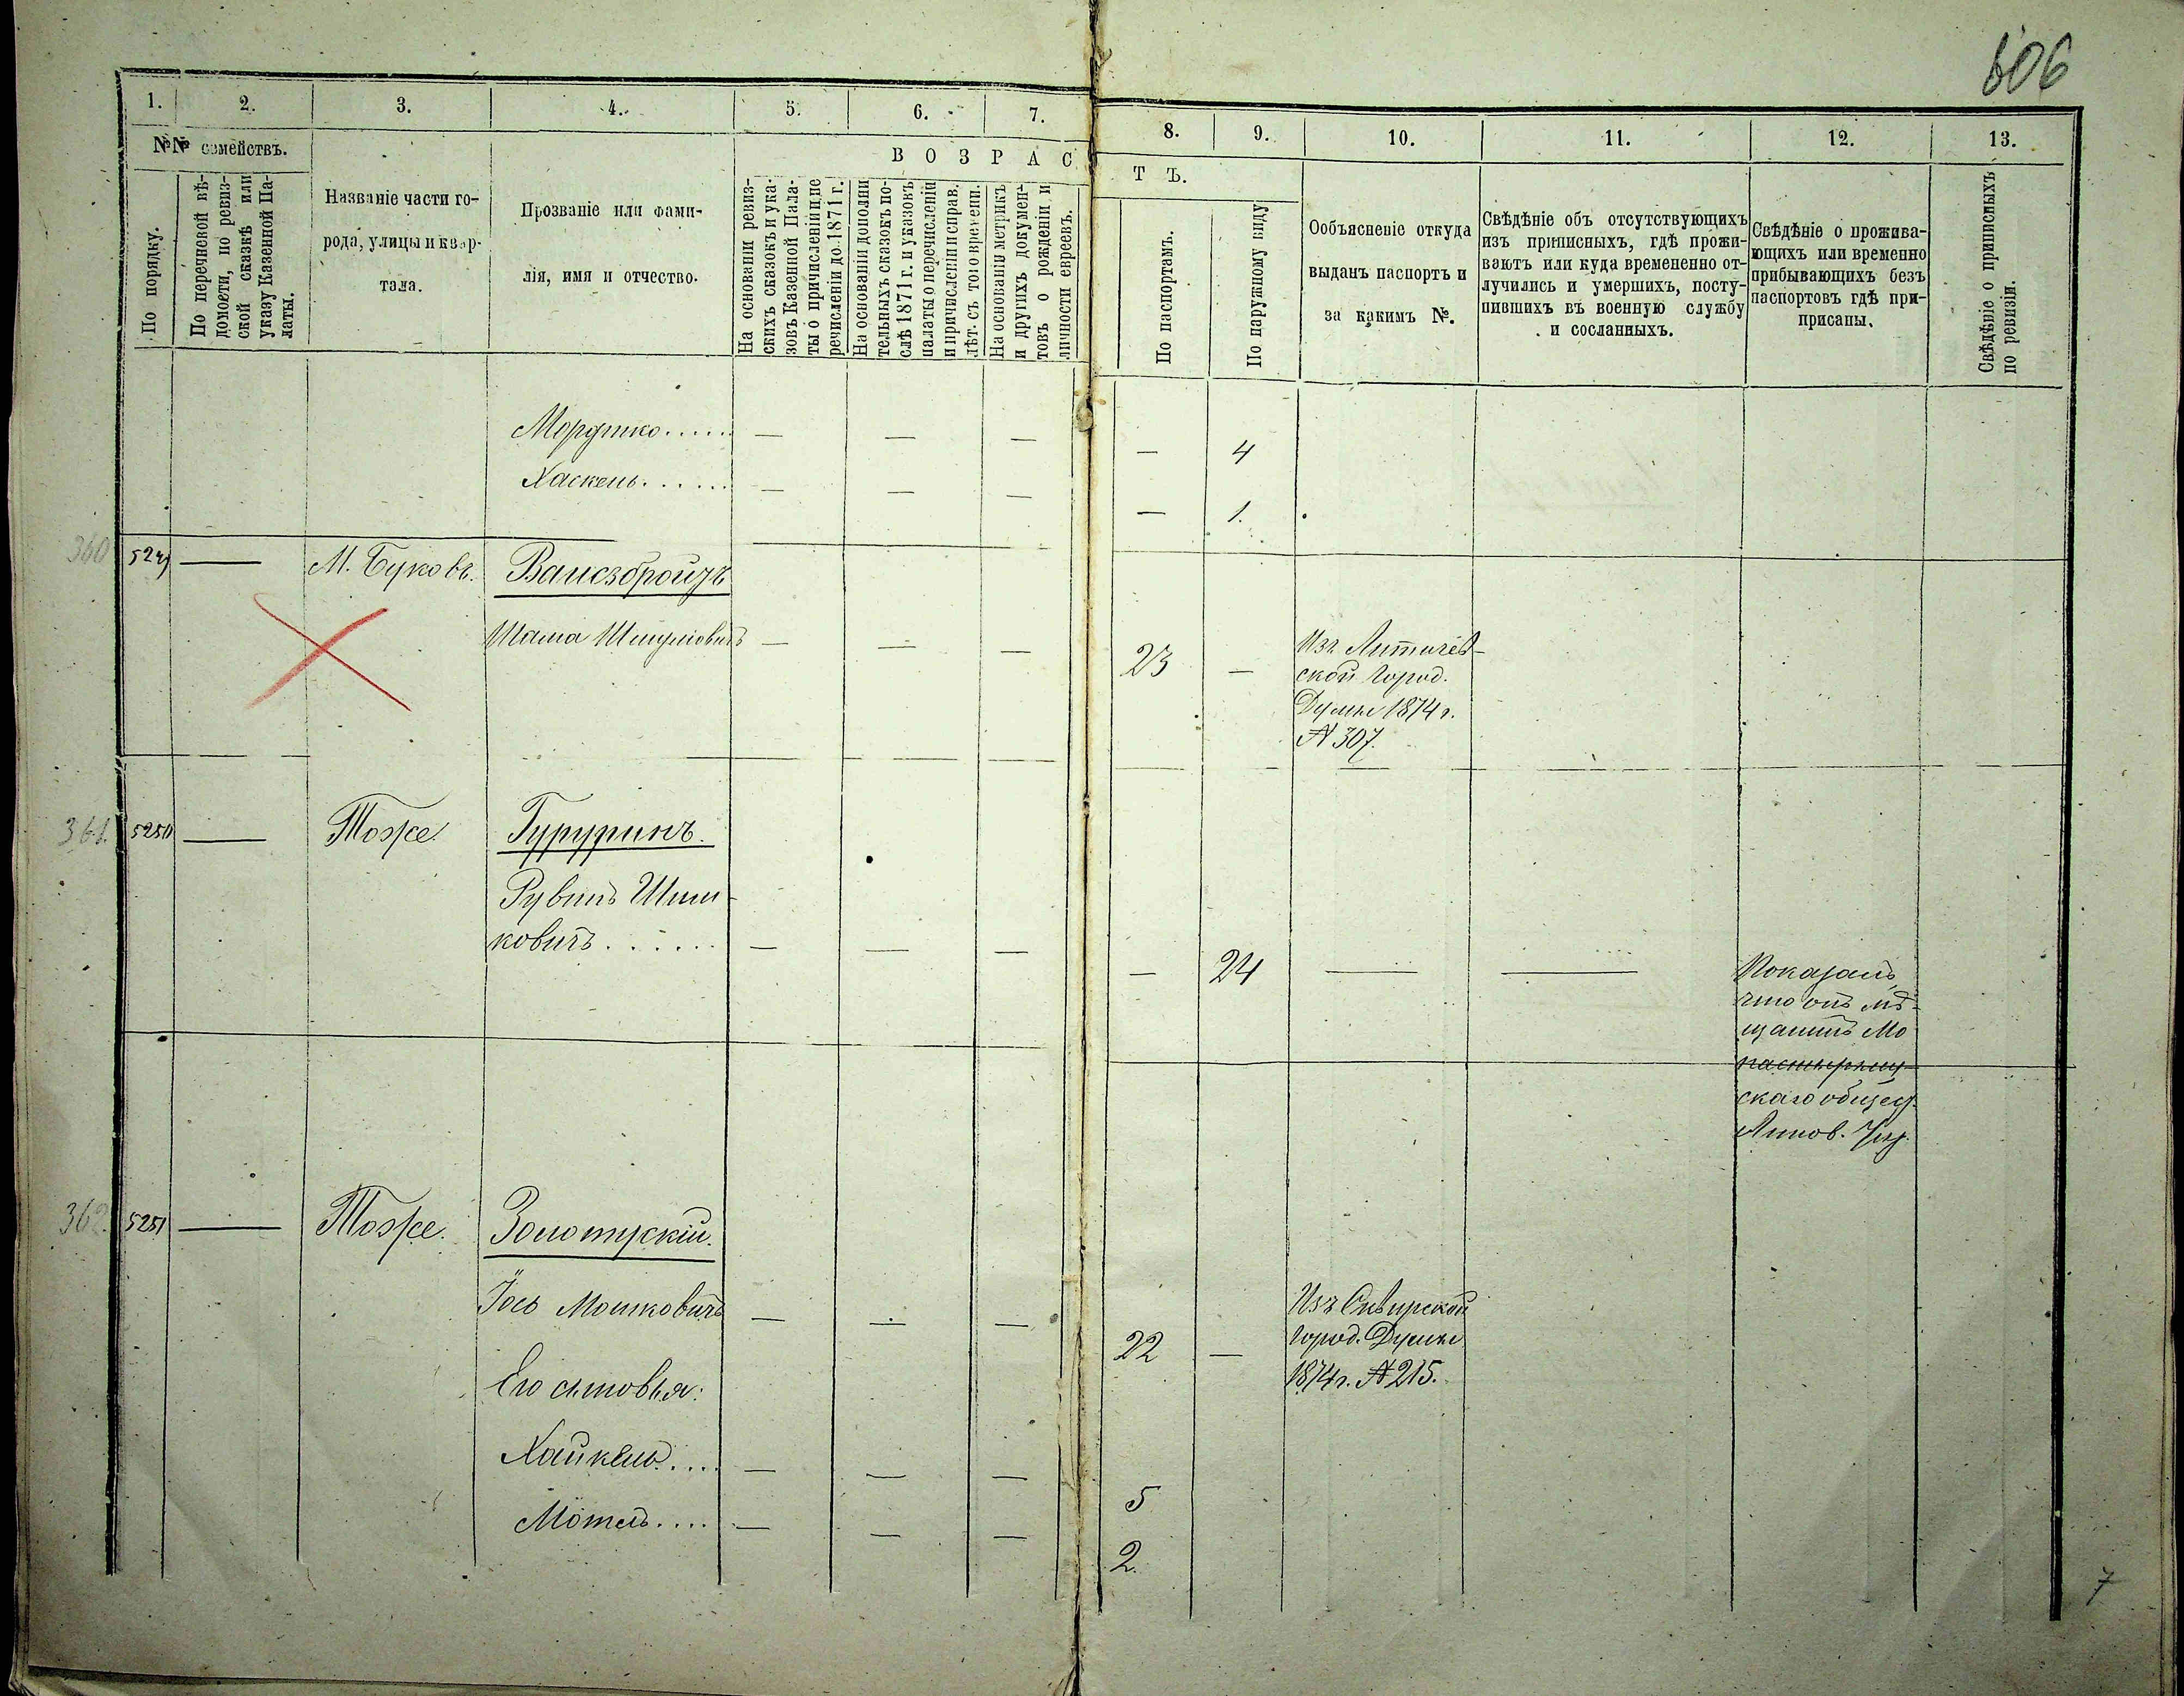 606
1.
2.
3.
4.
5.
6.
7.
8.
9.
10.
11.
12.
13.
№№ семействъ.
По порядку.
По перечневой вѣ-
домости, по ревиз-
ской сказкѣ или
указу Казенной Па-
латы.
Названіе части го-
рода, улицы и квар-
тала.
Прозваніе или фами-
лія, имя и отчество.
ВОЗРАС
ТЪ.
На основаніи ревиз-
скихъ сказокъ и ука-
зовъ Казенной Пала-
ты о причисленіи и пе
речисленіи до 1871 г.
На основаніи дополни
тельныхъ сказокъ по-
слѣ 1871 г. и указовъ
палаты о перечисленіи
и причисленіи и справ.
лѣт. съ того времени.
На основаніи метрикъ
и другихъ докумен-
товъ о рожденіи и
личности евреевъ.
По паспортамъ.
По наружному виду
Ообъясненіе откуда
выданъ паспортъ и
за какимъ №.
Свѣдѣніе объ отсутствующихъ
изъ приписныхъ, гдѣ прожи-
ваютъ или куда времененно от-
лучились и умершихъ, посту-
пившихъ въ военную службу
и сосланныхъ.
Свѣдѣніе о прожива-
ющихъ или временно
прибывающихъ безъ
паспортовъ гдѣ при-
писаны.
Свѣдѣніе о приписныхъ
по ревизіи.
Мордко..... — — — — 4
Хаскель...... — — — — 1.
360 5249 — М. Буковъ.
Шама Шмулiовичъ — — — 23 — Изъ Литичев-
ской Город.
Думы 1874 г.
№ 307.
361. 5250 — Тоже
Рувинъ Шим-
ковичъ...... — — — — 24 — — Показалъ,
что онъ мѣ-
щанинъ Мо
скаго общес.
Липов. Уѣз.
362. 5251 — Тоже. Золотускій.
Іось Мошковичъ — — — 22 — Изъ Сквирской
Город. Думы
1874 г. № 215.
Его сыновья:
Хайкель.... — — — 5
Мотель.... — — — 2.
7